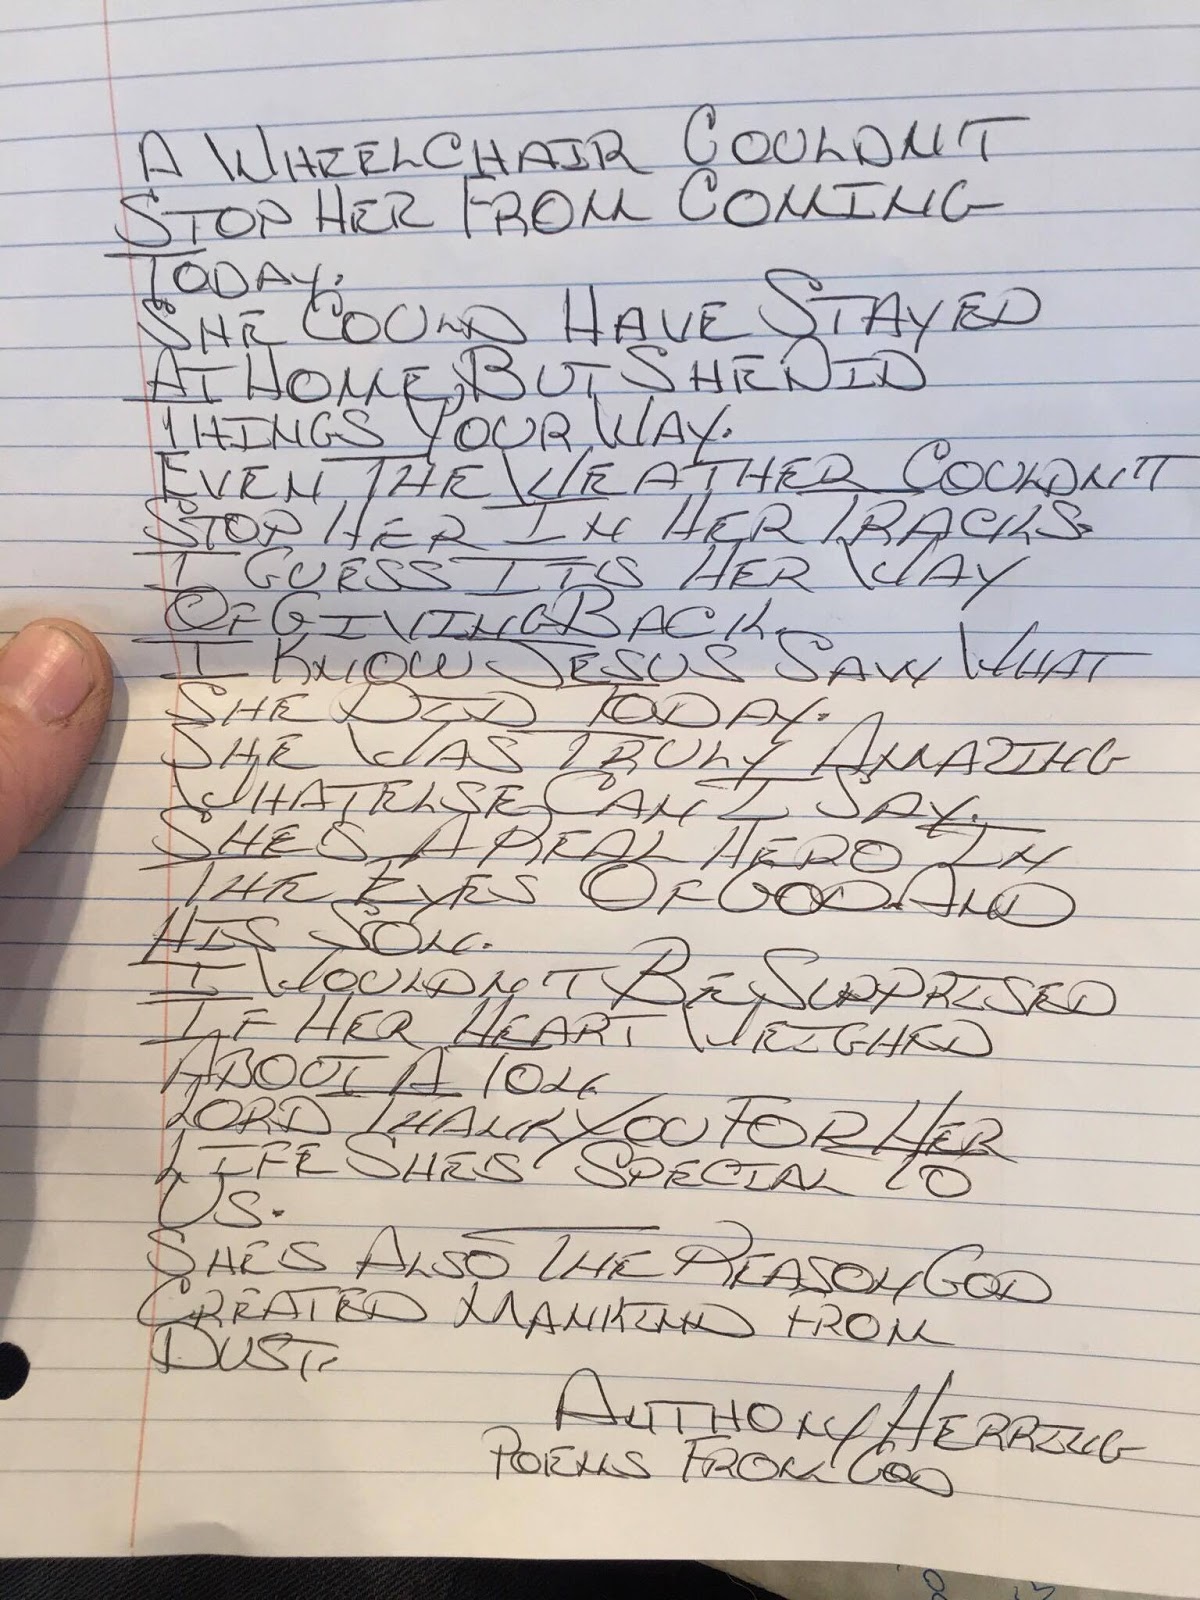 A WHEELCHAIR COULDN'T
STOP HER FROM COMING
TODAY.
SHE COULD HAVE STAYED
AT HOME, BUT SHE DID
THINGS YOUR WAY.
EVEN THE WEATHER COULDN'T
STOP HER IN HER TRACKS.
I GUESS IT'S HER WAY
OF GIVING BACK.
I KNOW JESUS SAW WHAT
SHE DID TODAY.
SHE WAS TRULY AMAZING
WHAT ELSE CAN I SAY.
SHE'S A REAL HERO IN
THE EYES OF GOD AND
HIS SON.
I WOULDN'T BE SURPRISED
IF HER HEART WEIGHED
ABOUT A TON.
LORD THANK YOU FOR HER
LIFE SHE'S SPECIAL TO
US.
SHE'S ALSO THE REASON GOD
CREATED MANKIND FROM
DUST.
ANTHONY HERRING
POEMS FROM GOD